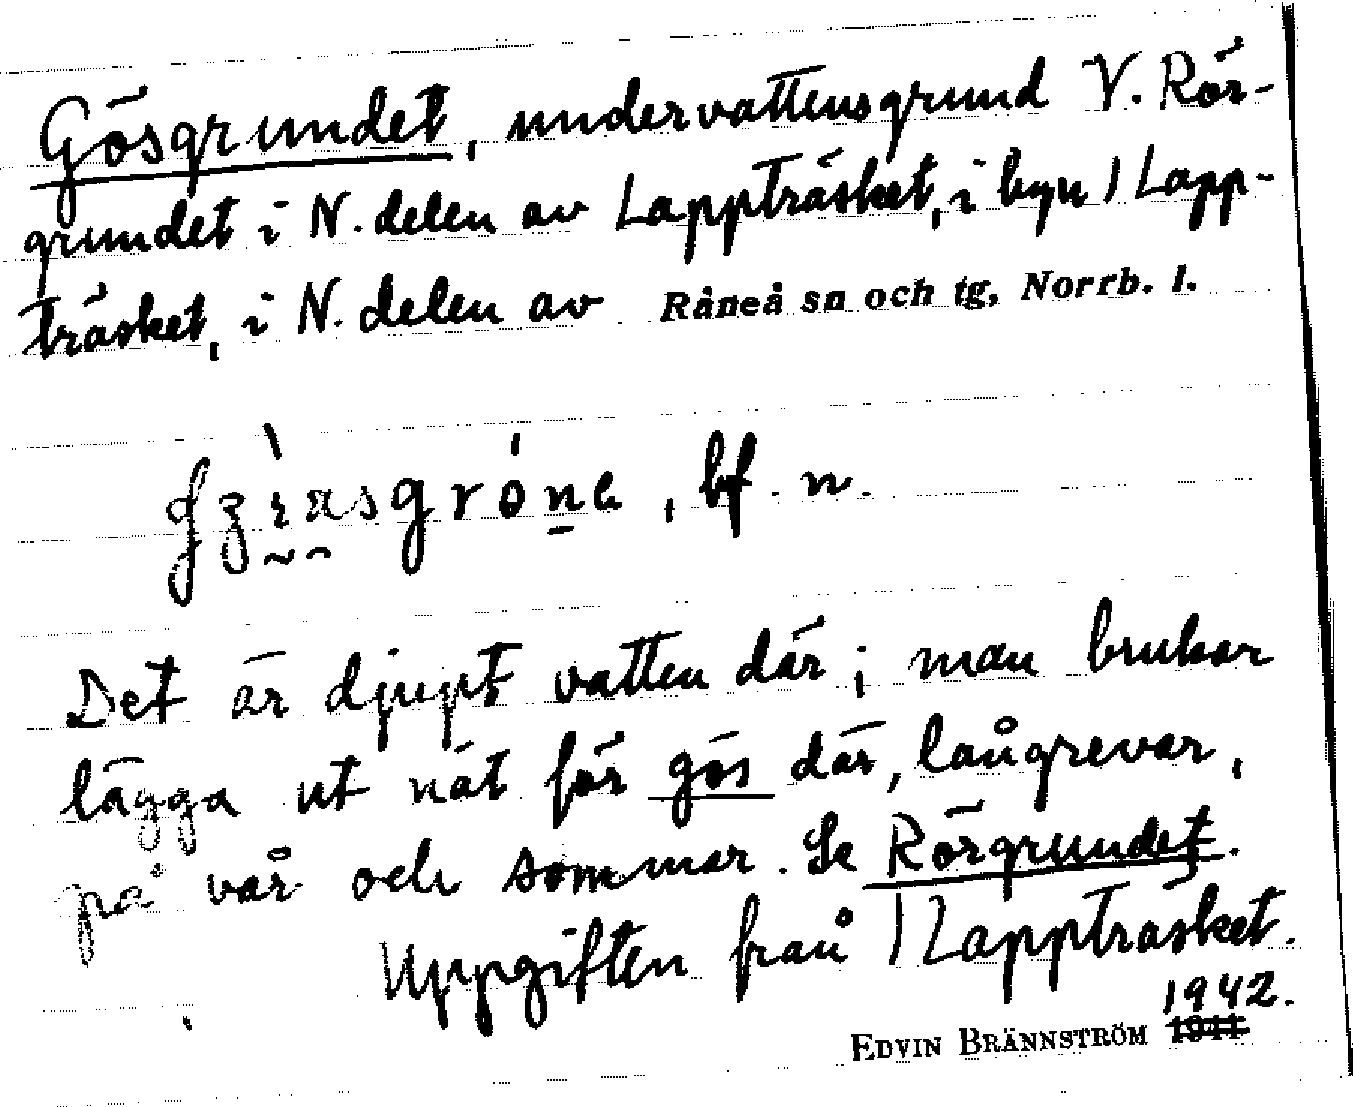 Gösgrundet, undervattensgrund V. Rör-
grundet i N. delen av Lappträsket, i byn 1 Lapp-
träsket, i N. delen av Råneå sn och tg, Norrb. l.
bf. n.
Det är djupt vatten där; man brukar
lägga ut nät för gös där, långrevar,
på vår och sommar. Se Rörgrundet.
Uppgiften från 1 Lappträsket.
1942.
EDVIN BRÄNNSTRÖM 1941